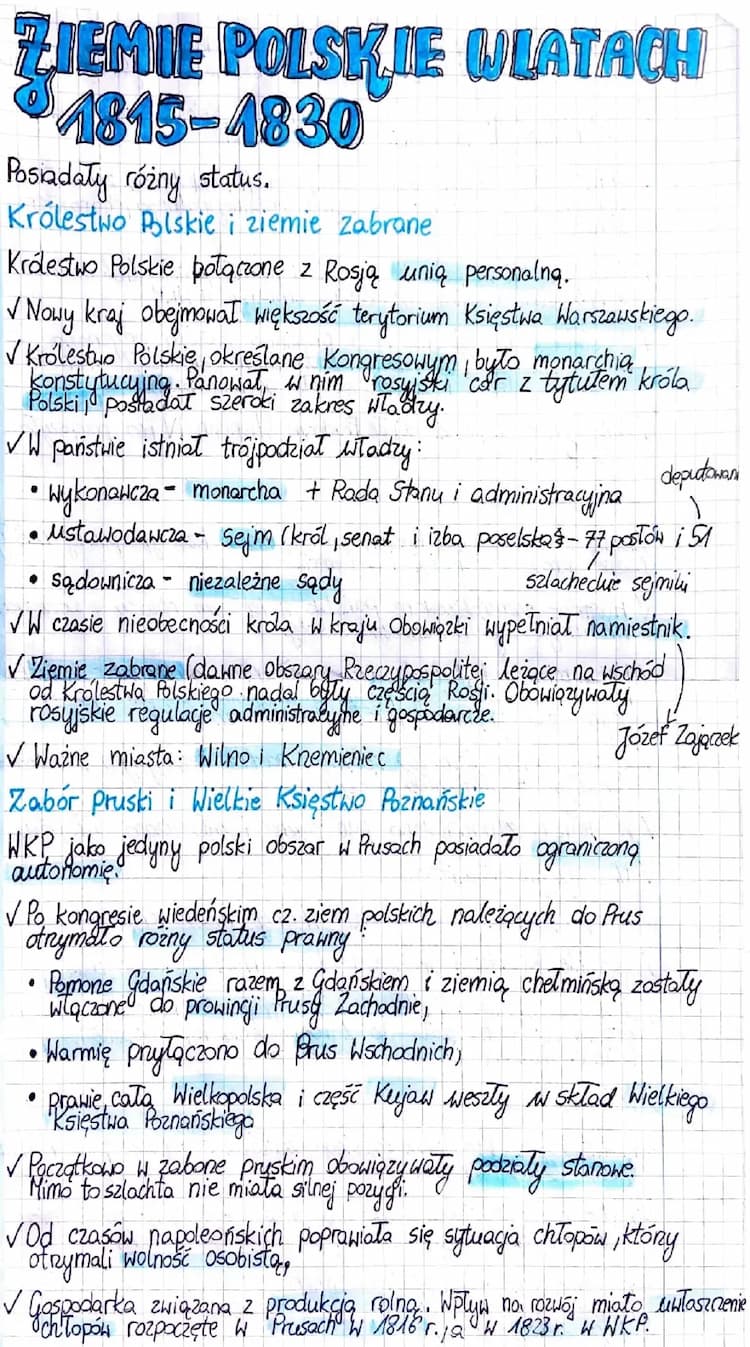 ZIEMIE POLSKIE W LATACH
1815-1830
Posiadały różny status.
Królestwo Polskie i ziemie zabrane
Królestwo Polskie połączone z Rosją unią personalną.
√ Nowy kraj obejmował większość terytorium Księstwa Warszawskiego.
√ Królestwo Polskie, określane Kongresowym, było monarchią
konstytucyjną. Panował w nim rosyjski car z tytułem króla
Polski, posiadał szeroki zakres władzy.
√ W państwie istniał trójpodział władzy:
deputowani
• wykonawcza - monarcha + Rada Stanu i administracyjna
• ustawodawcza - sejm (król, senat i izba poselska - 77 posłów i 51
szlacheckie sejmiki
• sądownicza - niezależne sądy
√ W czasie nieobecności króla w kraju obowiązki wypełniał namiestnik.
√ Ziemie zabrane (dawne obszary Rzeczypospolitej leżące na wschód
od Królestwa Polskiego nadal były częścią Rosji. Obowiązywały
rosyjskie regulacje administracyjne i gospodarcze.
Józef Zajączek
√ Ważne miasta: Wilno i Krzemieniec
Zabór Pruski i Wielkie Księstwo Poznańskie
WKP jako jedyny polski obszar w Prusach posiadało ograniczoną
autonomię.
√ Po kongresie wiedeńskim cz. ziem polskich należących do Prus
otrzymało różny status prawny:
• Pomorze Gdańskie razem z Gdańskiem i ziemią chełmińską zostały
włączone do prowincji Prusy Zachodnie,
• Warmię przyłączono do Prus Wschodnich,
• prawie cała Wielkopolska i część Kujaw weszły w skład Wielkiego
Księstwa Poznańskiego
√ Początkowo w zaborze pruskim obowiązywały podziały stanowe.
Mimo to szlachta nie miała silnej pozycji.
√ Od czasów napoleońskich poprawiała się sytuacja chłopów, który
otrzymali wolność osobistą,
√ Gospodarka związana z produkcją rolną. Wpływ na rozwój miało uwłaszczenie
chłopów rozpoczęte w Prusach w 1816 r. ,a w 1823 r. w WKP.